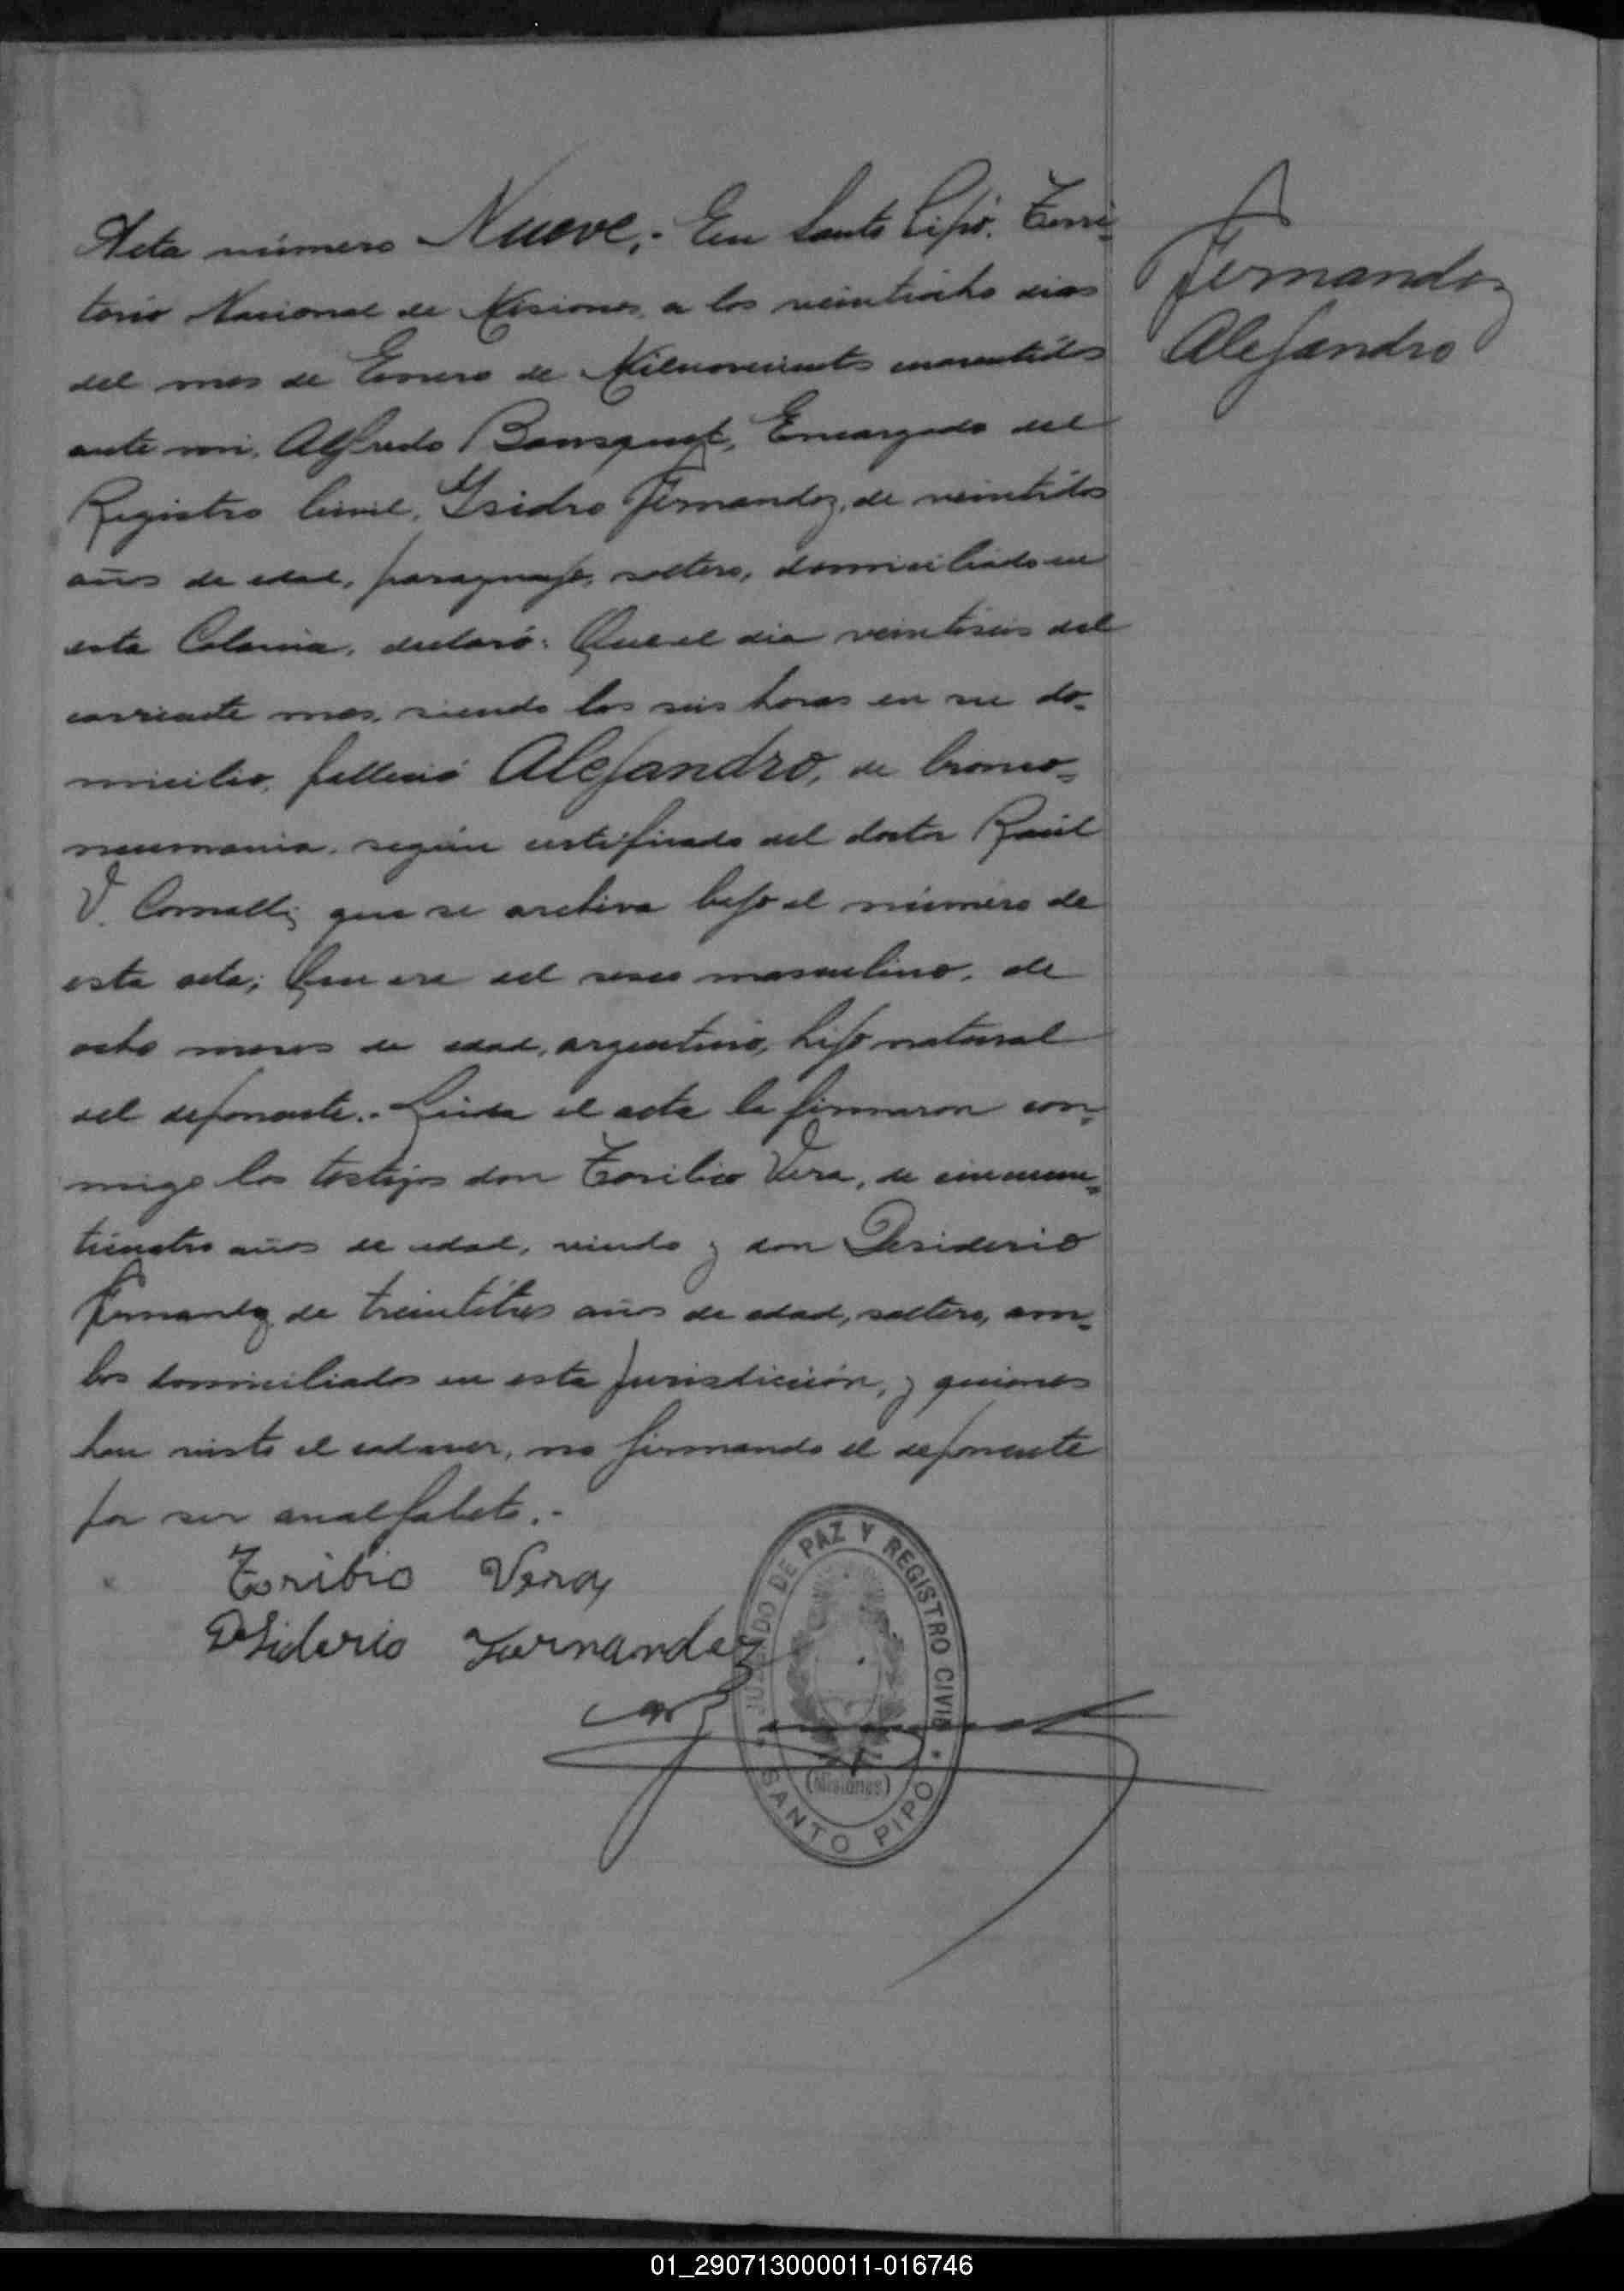 Acta número Nueve.- En Santo Pipó. Terri-
torio Nacional de Misiones, a los veintiocho dias
del mes de Enero de Milnovecientos cuarentidós
ante mi, Alfredo Bousquet, Encargado del
Registro Civil, Ysidro Fernandez, de veintidos
años de edad, paraguayo, soltero, domiciliado en
esta Colonia, declaró: Que el dia veintiseis del
corriente mes, siendo las seis horas en su do-
micilio, falleció Alejandro, de bronco-
neumonia, según certificado del doctor Raúl
V. que se archiva bajo el número de
esta acta; Que era del sexo masculino, de
ocho meses de edad, argentino, hijo natural
del deponente.- Leida el acta la firmaron con-
migo los testigos don Toribio Vera, de cincuen-
ticuatro años de edad, viudo y don Desiderio
Fernandez de treintitres años de edad, soltero, am-
bos domiciliados en esta jurisdicción, y quienes
han visto el cadaver, no firmando el deponente
por ser analfabeto.-
Toribio Vera
Desiderio Fernandez
JUZGADO DE PAZ Y REGISTRO CIVIL
(Misiones)
SANTO PIPO
Fernandez
Alejandro
01_290713000011-016746